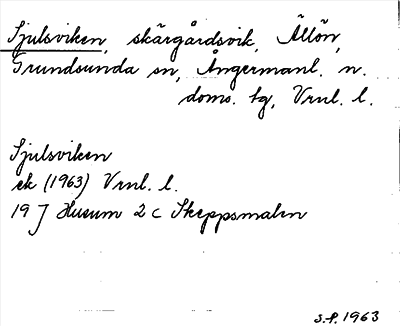 Sjulsviken, skärgårdsvik, Ällön,
Grundsunda sn, Ångermanl. n.
doms. tg, Vrnl. l.
Sjulsviken
ek (1963) Vrnl. l.
19 J Husum 2 c Skeppsmalen
S.P. 1963